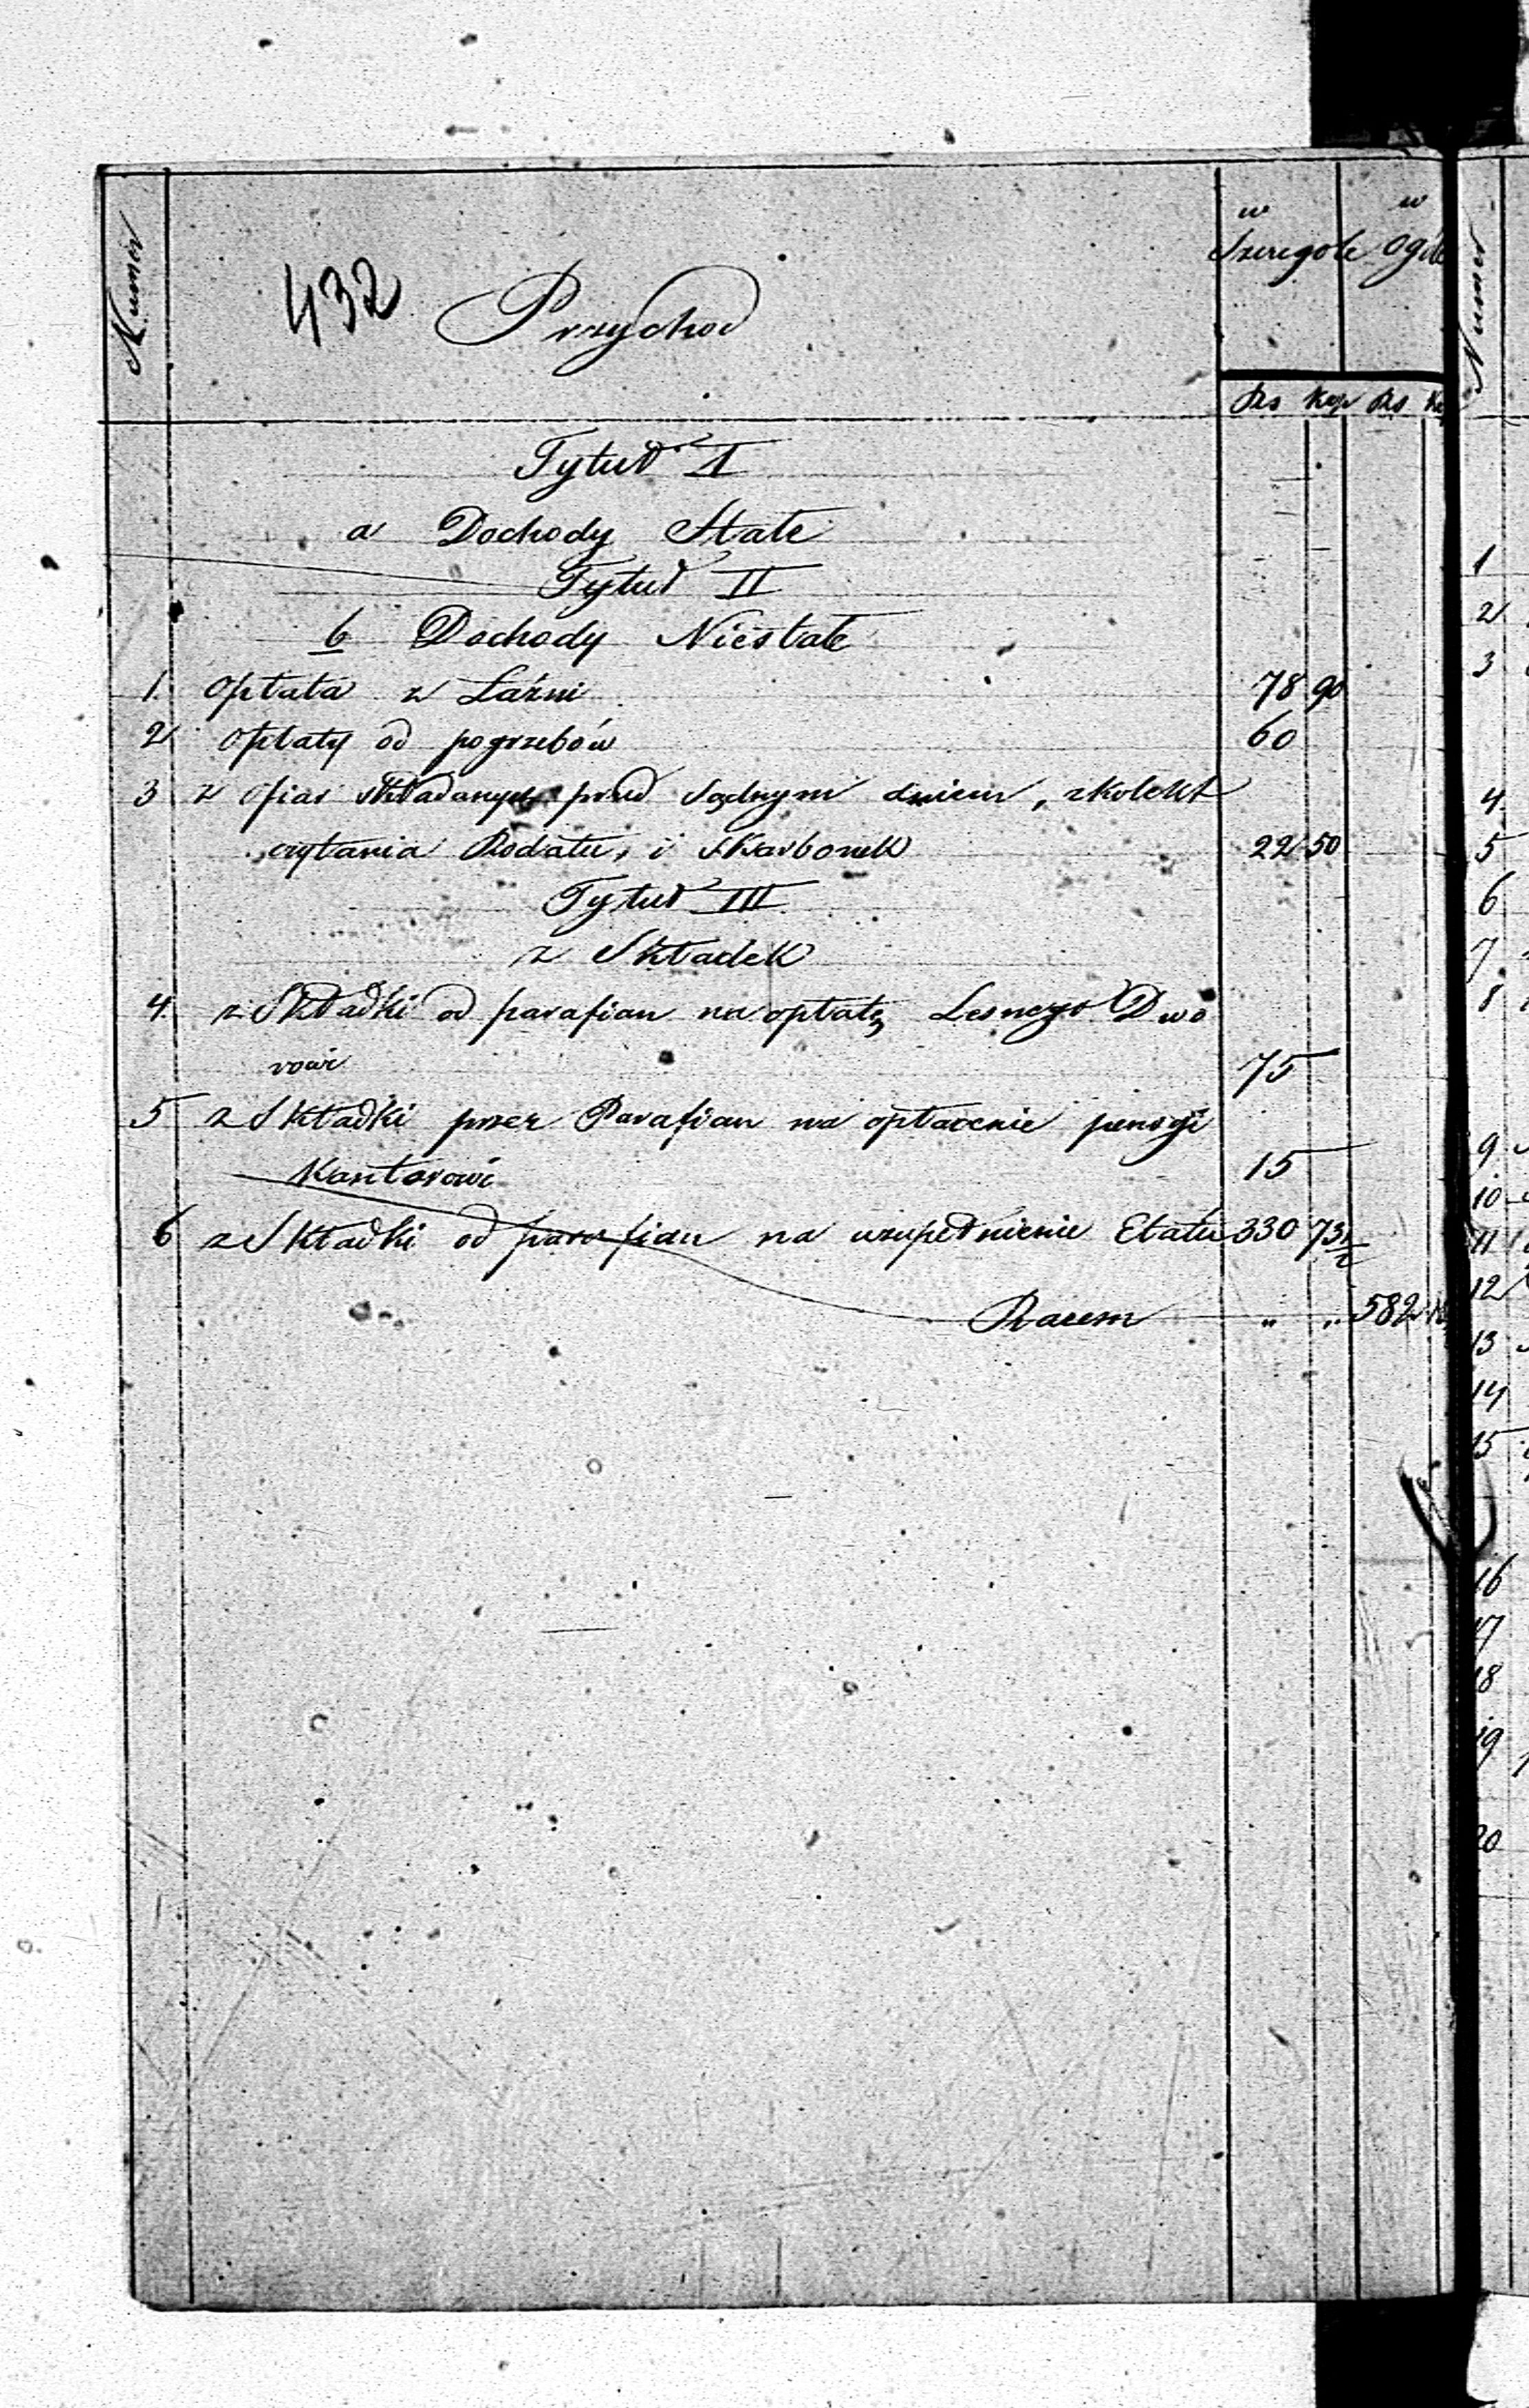 Numer
432
Przychod
w
Szczegole
w
Ogóle
Rs Kop Rs
Tytuł I
a Dochody Stałe
Tytuł II
b Dochody Niestałe
1. Opłata z Łaźni 78 90
2 Opłaty od pogrzebów 60
3 z Ofiar składanych przed Sądnym dniem, z kolekt
czytania Rodału, i skarbonek 22 50
Tytuł III
z Składek
4. z Składki od parafian na opłatę Lesnego Dwo
rowi 75
5 z Składki przez Parafian na opłacenie pensyi
Kantorowi 15
6 z Składki od parafian na uzupełnienie Etatu 330 73 1/2
Razem " " 582
Numer
1
2
3
4.
5
6
7.
8
9
10
11
12
13
14
15
16
17
18
19
20